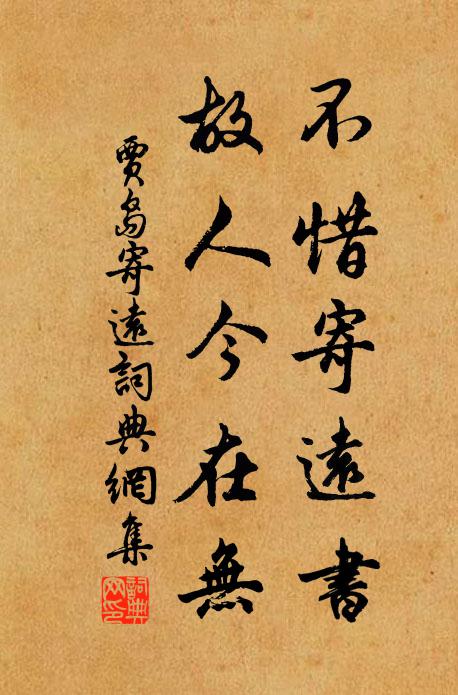 不惜寄遠書
故人今在無
賈島寄遠詞典網集
詞典
网印